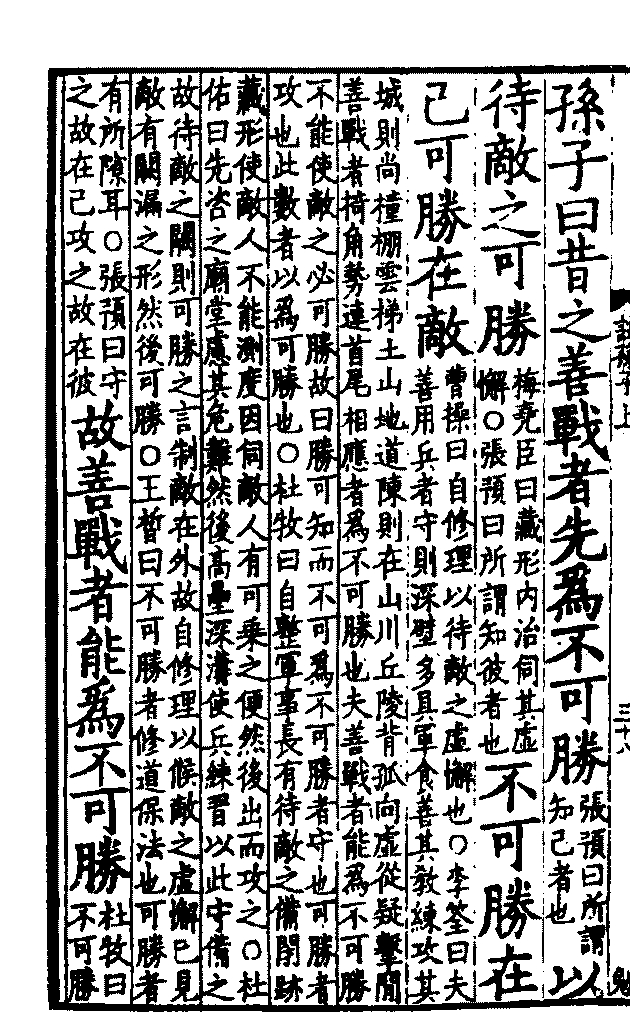 孫子曰昔之善戰者先爲不可勝
張預曰所謂
知己者也
以
待敵之可勝
梅堯臣曰藏形内治伺其虛
懈〇張預曰所謂知彼者也
不可勝在
己可勝在敵
曹操曰自修理以待敵之虛懈也〇李筌曰夫
善用兵者守則深壁多具軍食善其敎練攻其
城則尚橦棚雲梯土山地道陳則在山川丘陵背孤向虛從疑擊閒
善戰者掎角勢連首尾相應者爲不可勝也夫善戰者能爲不可勝
不能使敵之必可勝故曰勝可知而不可爲不可勝者守也可勝者
攻也此數者以爲可勝也〇杜牧曰自整軍事長有待敵之備閉跡
藏形使敵人不能測度因伺敵人有可乗之便然後出而攻之〇杜
佑曰先咨之廟堂慮其危難然後高壘深溝使兵練習以此守備之
故待敵之闕則可勝之言制敵在外故自修理以候敵之虛懈已見
敵有闕漏之形然後可勝〇王晳曰不可勝者修道保法也可勝者
有所隙耳〇張預曰守
之故在己攻之故在彼
故善戰者能爲不可勝
杜牧曰
不可勝